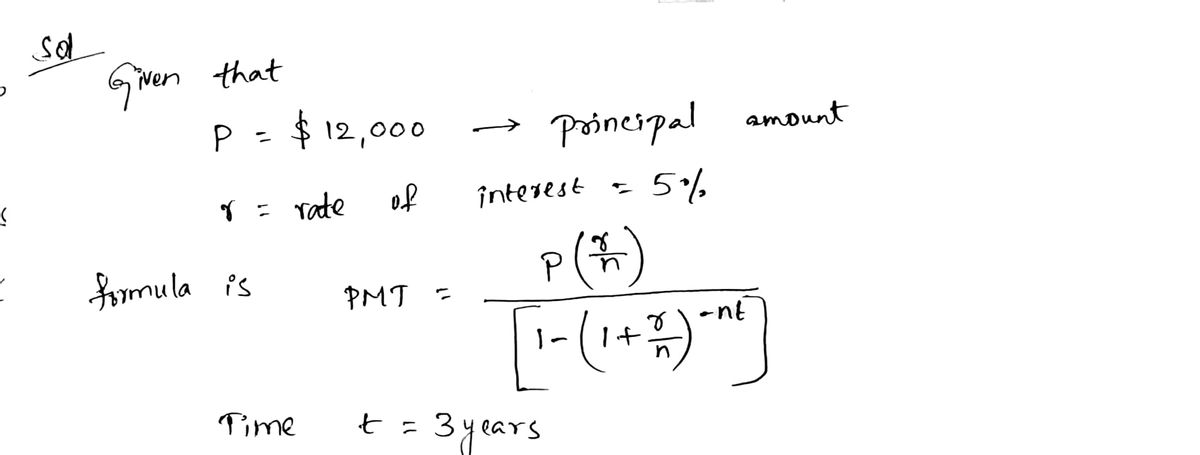 Sol
Given that
P = $ 12,000 → principal amount
r = rate of interest = 5%
formula is PMT = P(r/n) / [1-(1+r/n)^-nt]
Time t = 3 years